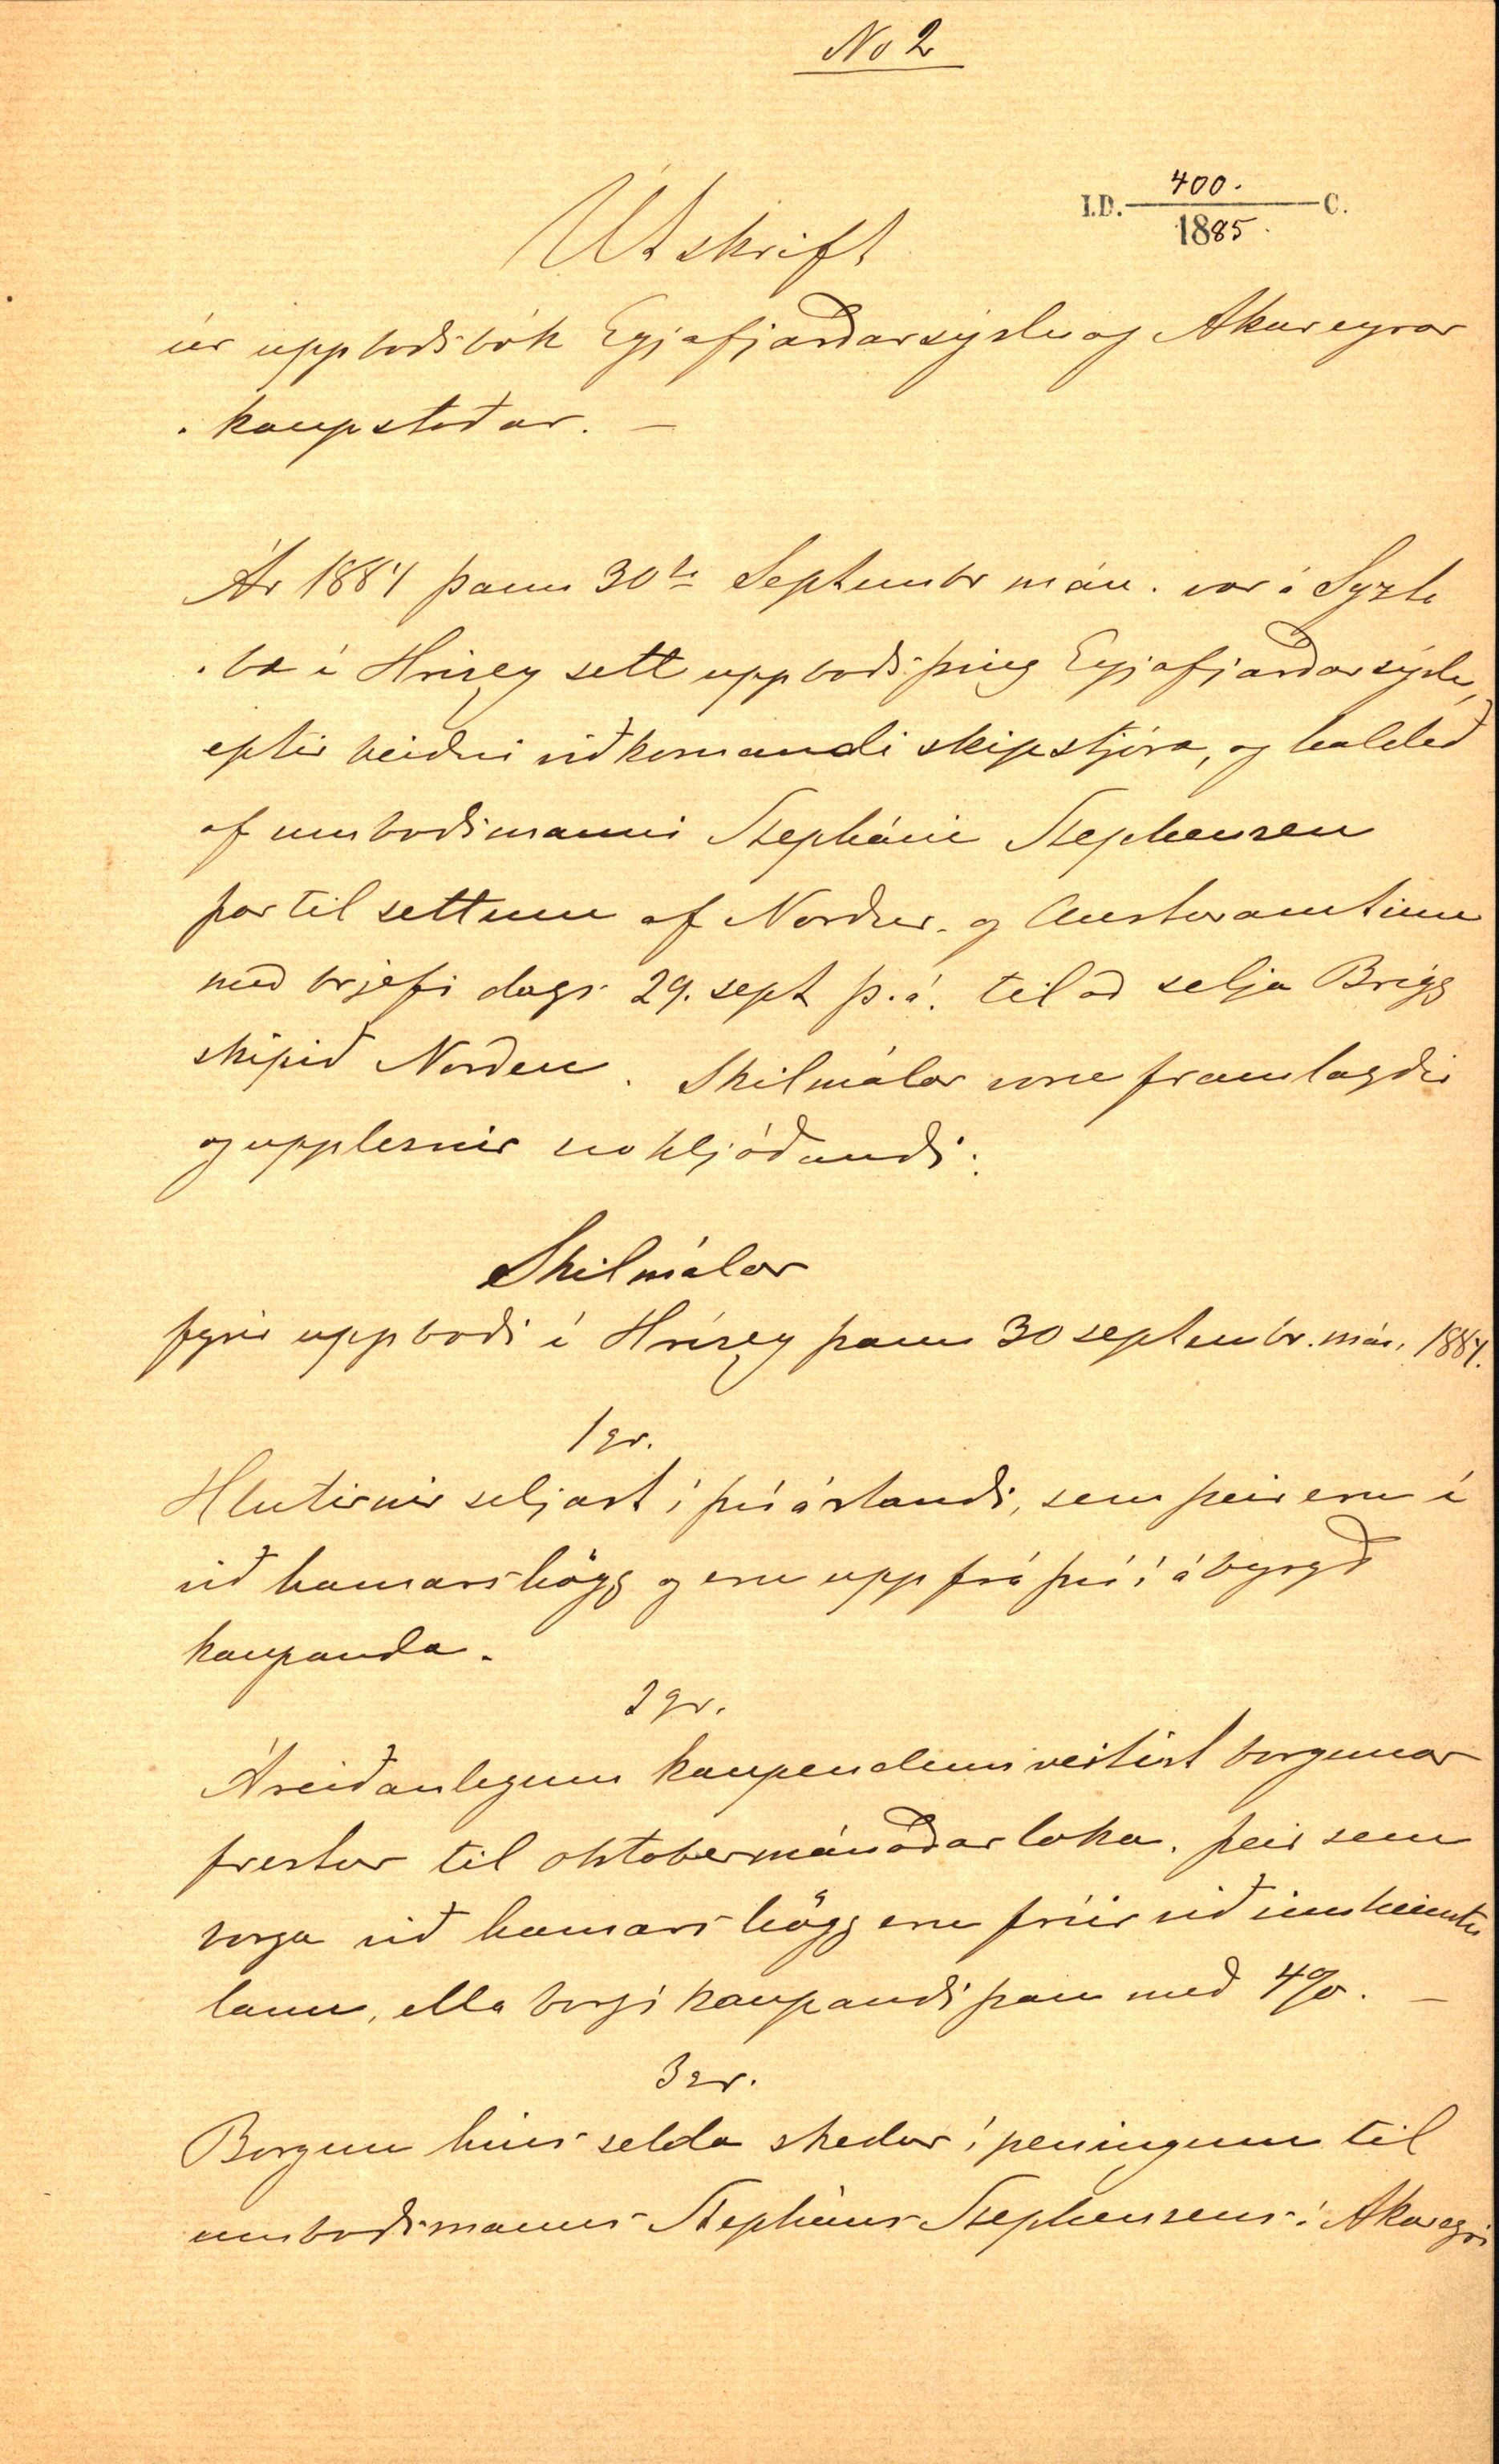 No 2
I.D. 400. C.
1885.
Útskrift
úr uppboðsbók Eyjafjarðarsýslu og Akureyrar
kaupstaðar. –
Ár 1884 þann 30te Septembr mán. var í Syzta
bæ í Hrísey sett uppboðsþing Eyjafjarðarsýslu,
eptir beiðni viðkomandi skipstjóra, og haldið
af umboðsmanni Stepháni Stephensen
þar til settum af Norður- og Austuramtinu
með brjefi dags 29. sept þ. á. til að selja Brigg
skipið Norden. Skilmálar voru framlagðir
og upplesnir svo hljóðandi:
Skilmálar
fyrir uppboði í Hrísey þann 30 septembr. mán. 1884.
1 gr.
Hlutirnir seljast í því ástandi, sem þeir eru í
við hamarshögg og eru upp frá því í ábyrgð
kaupanda.
2 gr.
Áreiðanlegum kaupendum veitist borgunar
frestur til oktobermánaðar loka. þeir sem
borga við hamarshögg eru fríir við innheimtu
laun, ella borgi kaupandi þau með 4%. –
3 gr.
Borgun hins selda skedur í peningum til
umboðsmanns Stepháns Stephensens í Akureyri